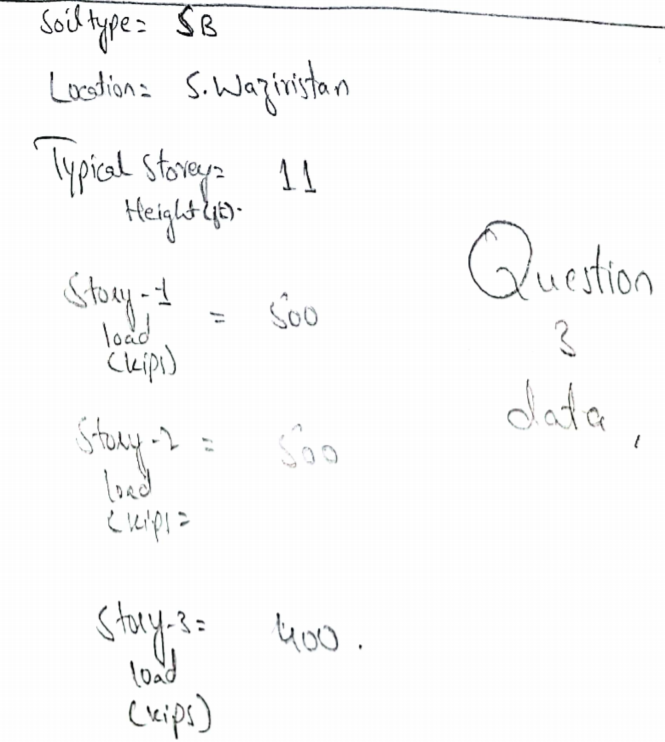 Soil type = SB
Location = S. Waziristan
Typical Storey = 11
Height (ft).
Story-1
load
(kips)
= 500
Story-2 = 500
load
(kips =
Story-3 = 400.
load
(kips)
Question
3
data,